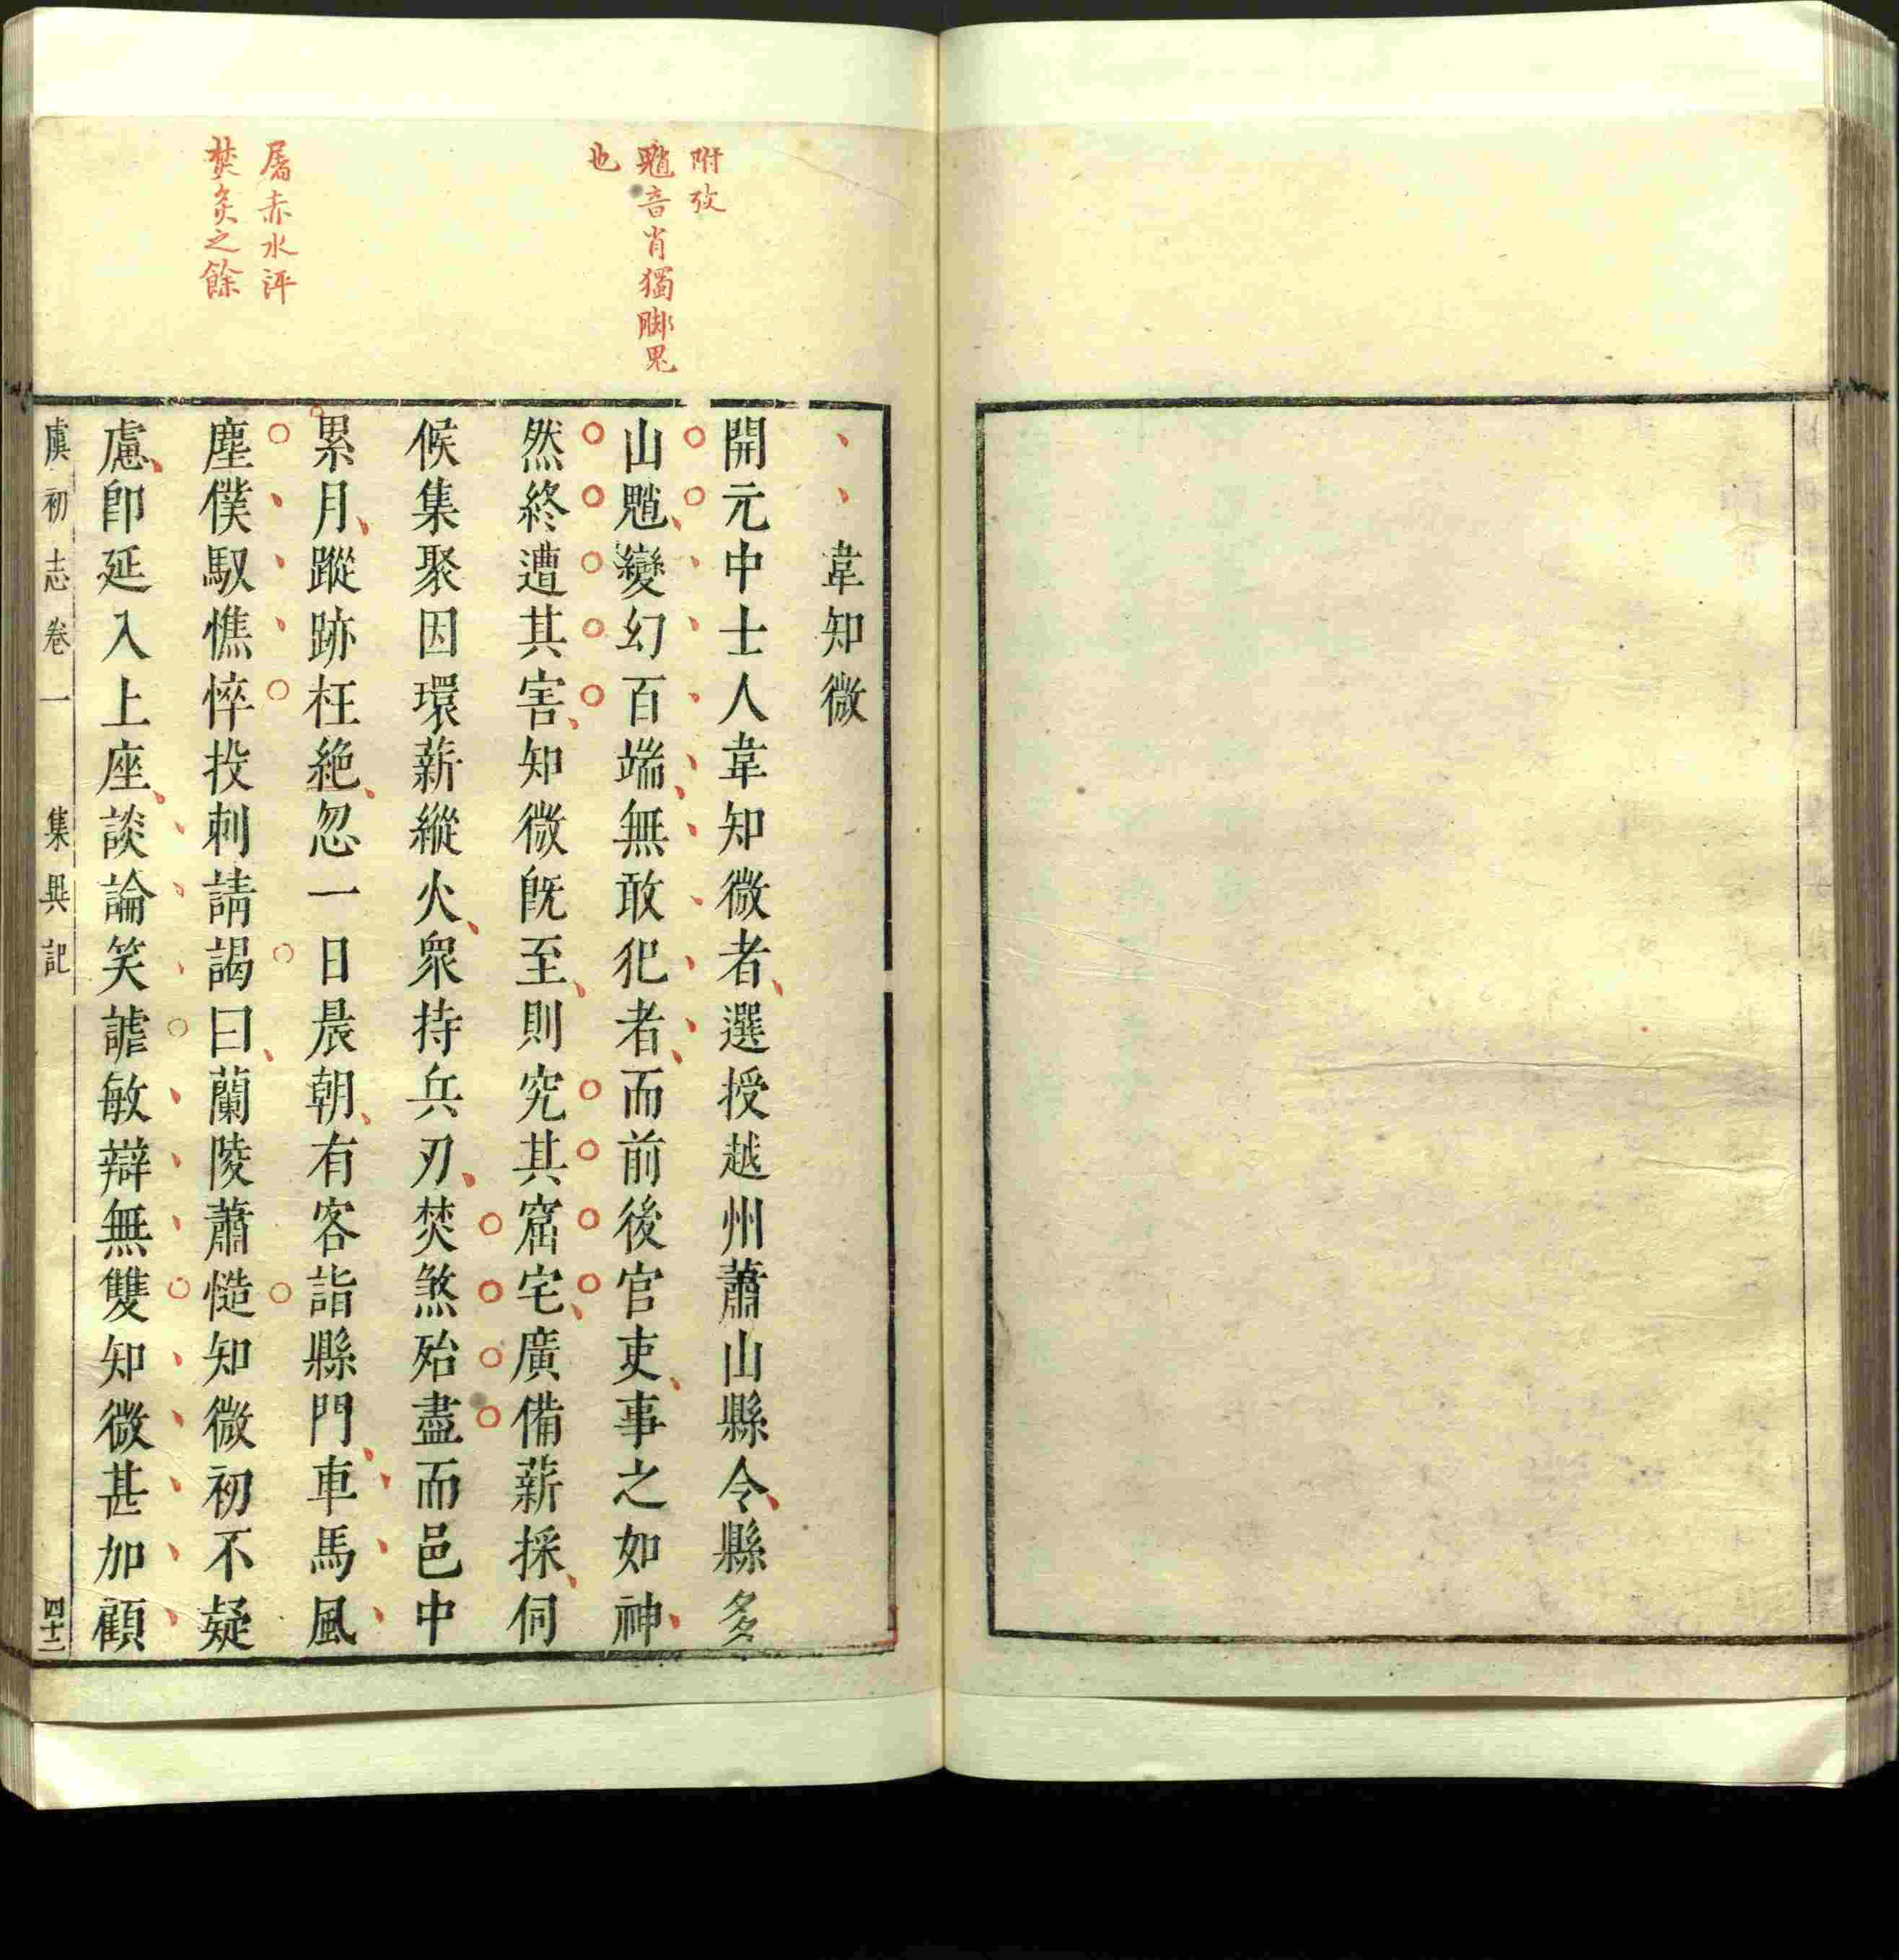 附攷
魈音肖獨脚鬼
也
屠赤水評
焚炙之餘
韋知微
開元中士人韋知微者選授越州蕭山縣令縣多
山魈變幻百端無敢犯者而前後官吏事之如神
然終遭其害知微既至則究其窟宅廣備薪採伺
候集聚因環薪縱火衆持兵刃焚煞殆盡而邑中
累月蹤跡枉絶忽一日晨朝有客詣縣門車馬風
塵僕馭憔悴投刺請謁曰蘭陵蕭慥知微初不疑
慮卽延入上座談論笑謔敏辯無雙知微甚加顧
虞初志卷一 集異記 四十二